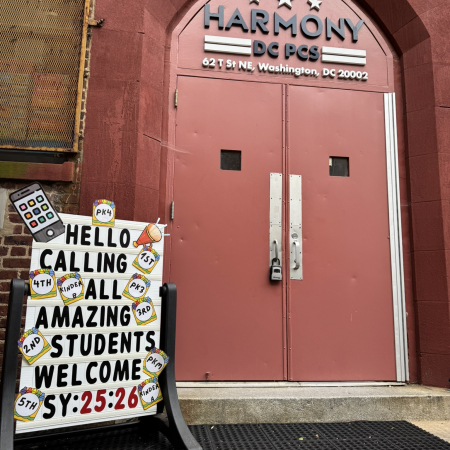 HARMONY
DC PCS
62 T St NE, Washington, DC 20002
PK4
HELLO
1ST
CALLING
4TH
KINDER B
ALL
PK3
AMAZING
3RD
2ND
STUDENTS
WELCOME
PK3
SY:25:26
5TH
KINDER A